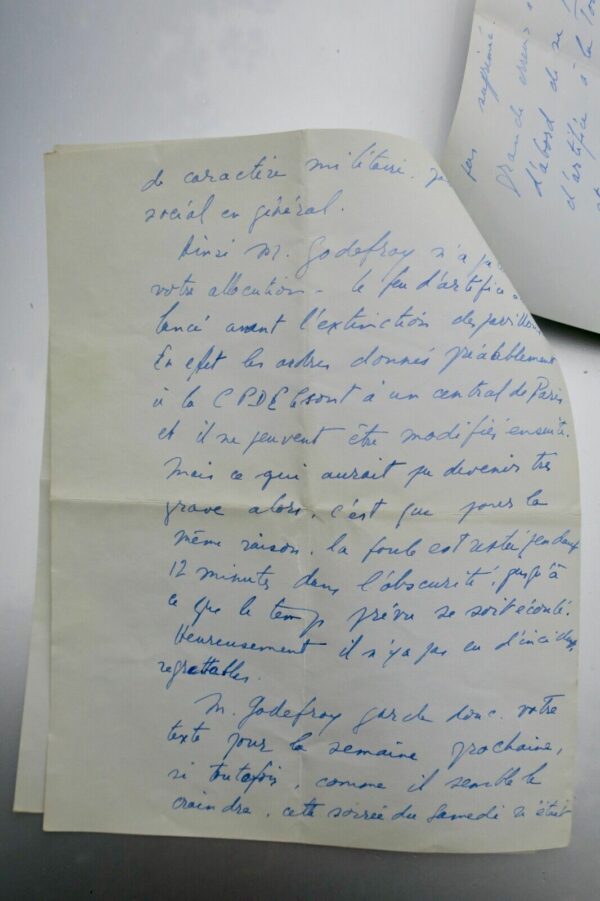 de caractère militaire.
social en général.
Ainsi M. Godefroy n'a
votre allocution - le feu d'artifice
lancé avant l'extinction des pavillons
En effet les ordres donnés préalablement
à la CPDE sont à un central de Paris
et il ne peuvent être modifiés ensuite.
Mais ce qui aurait pu devenir très
grave alors, c'est que pour la
même raison, la foule est restée pendant
12 minutes dans l'obscurité, jusqu'à
ce que le temps prévu se soit écoulé.
Heureusement il n'y a pas eu d'incidents
regrettables.
M. Godefroy garde donc votre
texte pour la semaine prochaine,
si toutefois, comme il semble le
craindre, cette soirée du Samedi n'était
pas supprimé.
Grande erreur
d'abord de se
d'artifice à la